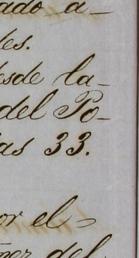 ado a-
tes.
desde la-
del Po-
as 33.
or el-
del